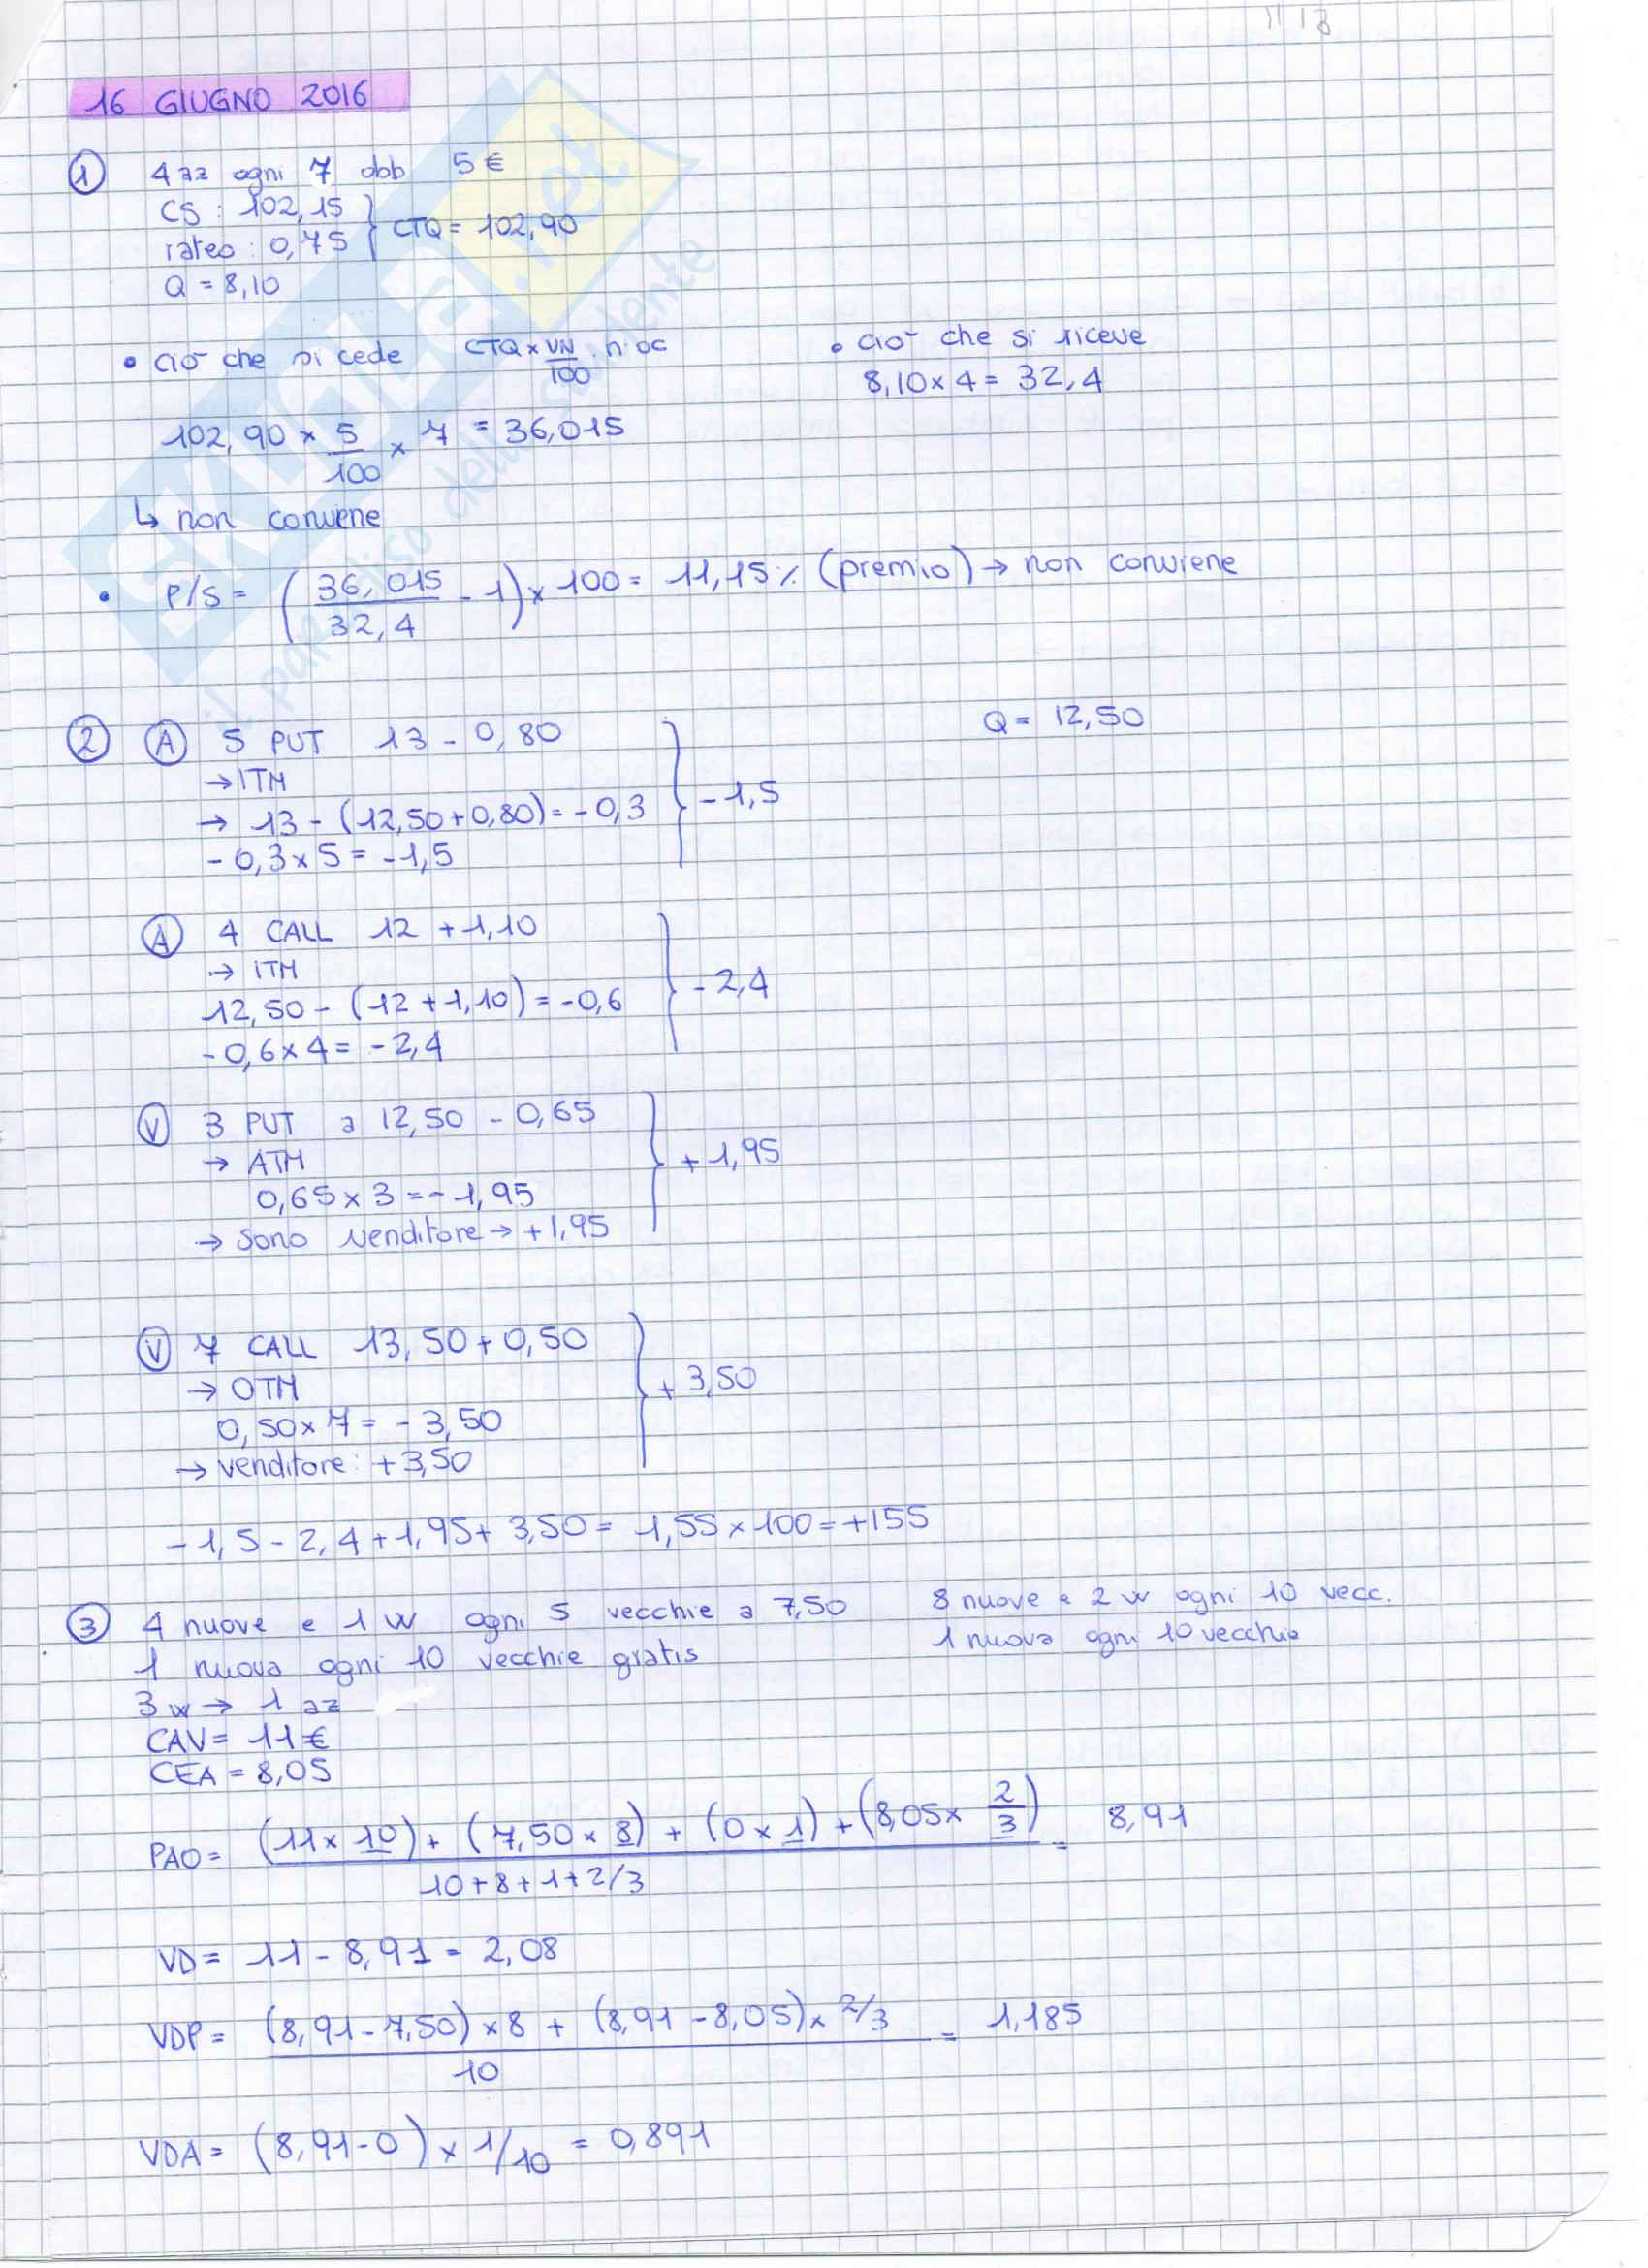 16 GIUGNO 2016
① 4 az ogni 7 obb 5 €
CS : 102,15
rateo : 0,75 } CTQ = 102,90
Q = 8,10
• ciò che si cede CTQ × VN/100 . n. oc
• ciò che si riceve
8,10 × 4 = 32,4
102,90 × 5/100 × 7 = 36,015
↳ non conviene
• P/S = (36,015/32,4 - 1) × 100 = 11,15 % (premio) → non conviene
② Ⓐ 5 PUT 13 - 0,80
Q = 12,50
→ ITM
→ 13 - (12,50 + 0,80) = - 0,3 } - 1,5
- 0,3 × 5 = - 1,5
Ⓐ 4 CALL 12 + 1,10
→ ITM
12,50 - (12 + 1,10) = - 0,6 } - 2,4
- 0,6 × 4 = - 2,4
Ⓥ 3 PUT a 12,50 - 0,65
→ ATM } + 1,95
0,65 × 3 = - 1,95
→ sono venditore → + 1,95
Ⓥ 7 CALL 13,50 + 0,50
→ OTM } + 3,50
0,50 × 7 = - 3,50
→ venditore : + 3,50
- 1,5 - 2,4 + 1,95 + 3,50 = 1,55 × 100 = + 155
③ 4 nuove e 1 w ogni 5 vecchie a 7,50
8 nuove e 2 w ogni 10 vecc.
1 nuova ogni 10 vecchie gratis
1 nuova ogni 10 vecchie
3 w → 1 az
CAV = 11 €
CEA = 8,05
PAO = (11 × 10) + (7,50 × 8) + (0 × 1) + (8,05 × 2/3) / 10 + 8 + 1 + 2/3 = 8,91
VD = 11 - 8,91 = 2,08
VDP = (8,91 - 7,50) × 8 + (8,91 - 8,05) × 2/3 / 10 = 1,185
VDA = (8,91 - 0) × 1/10 = 0,891
SKUOLA.net
il paradiso dello studente